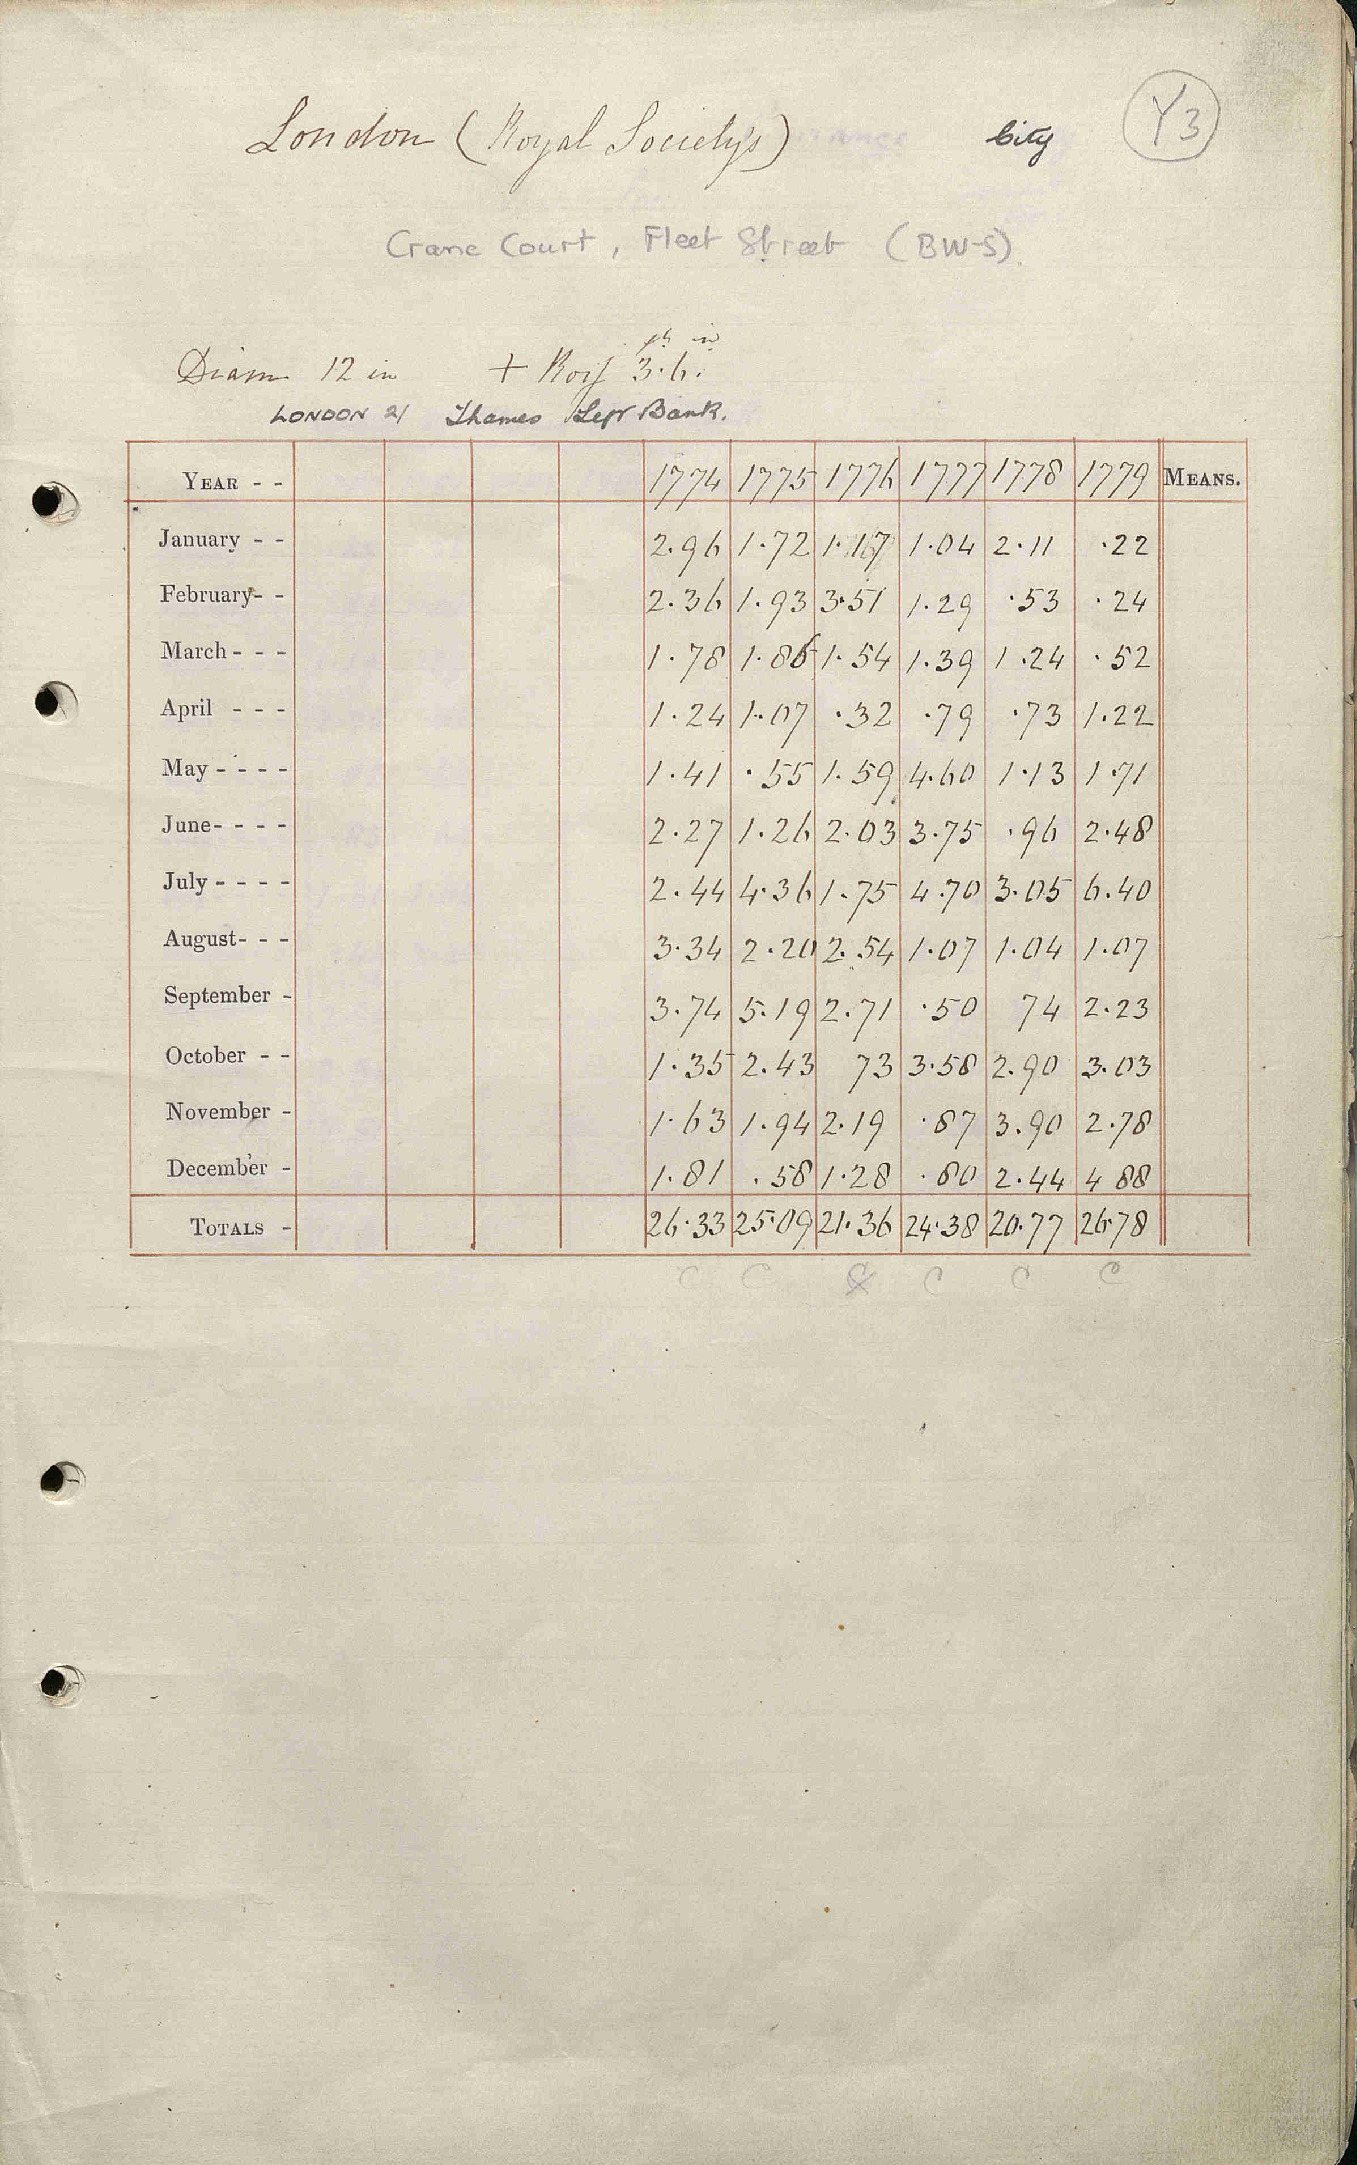 London (Royal Society's) City Y3
Crane Court, Fleet Street (BW-S).
ft in
Diam 12 in + Roof 3.6.
LONDON 21 Thames Left Bank.
YEAR - - 1774 1775 1776 1777 1778 1779 MEANS.
January - - 2.96 1.72 1.17 1.04 2.11 .22
February - - 2.36 1.93 3.51 1.29 .53 .24
March - - - 1.78 1.86 1.54 1.39 1.24 .52
April - - - 1.24 1.07 .32 .79 .73 1.22
May - - - - 1.41 .55 1.59 4.60 1.13 1.71
June - - - - 2.27 1.26 2.03 3.75 .96 2.48
July - - - - 2.44 4.36 1.75 4.70 3.05 6.40
August - - - 3.34 2.20 2.54 1.07 1.04 1.07
September - 3.74 5.19 2.71 .50 74 2.23
October - - 1.35 2.43 73 3.58 2.90 3.03
November - 1.63 1.94 2.19 .87 3.90 2.78
December - 1.81 .58 1.28 .80 2.44 4 88
TOTALS - 26.33 25.09 21.36 24.38 20.77 26.78
C C C C C C